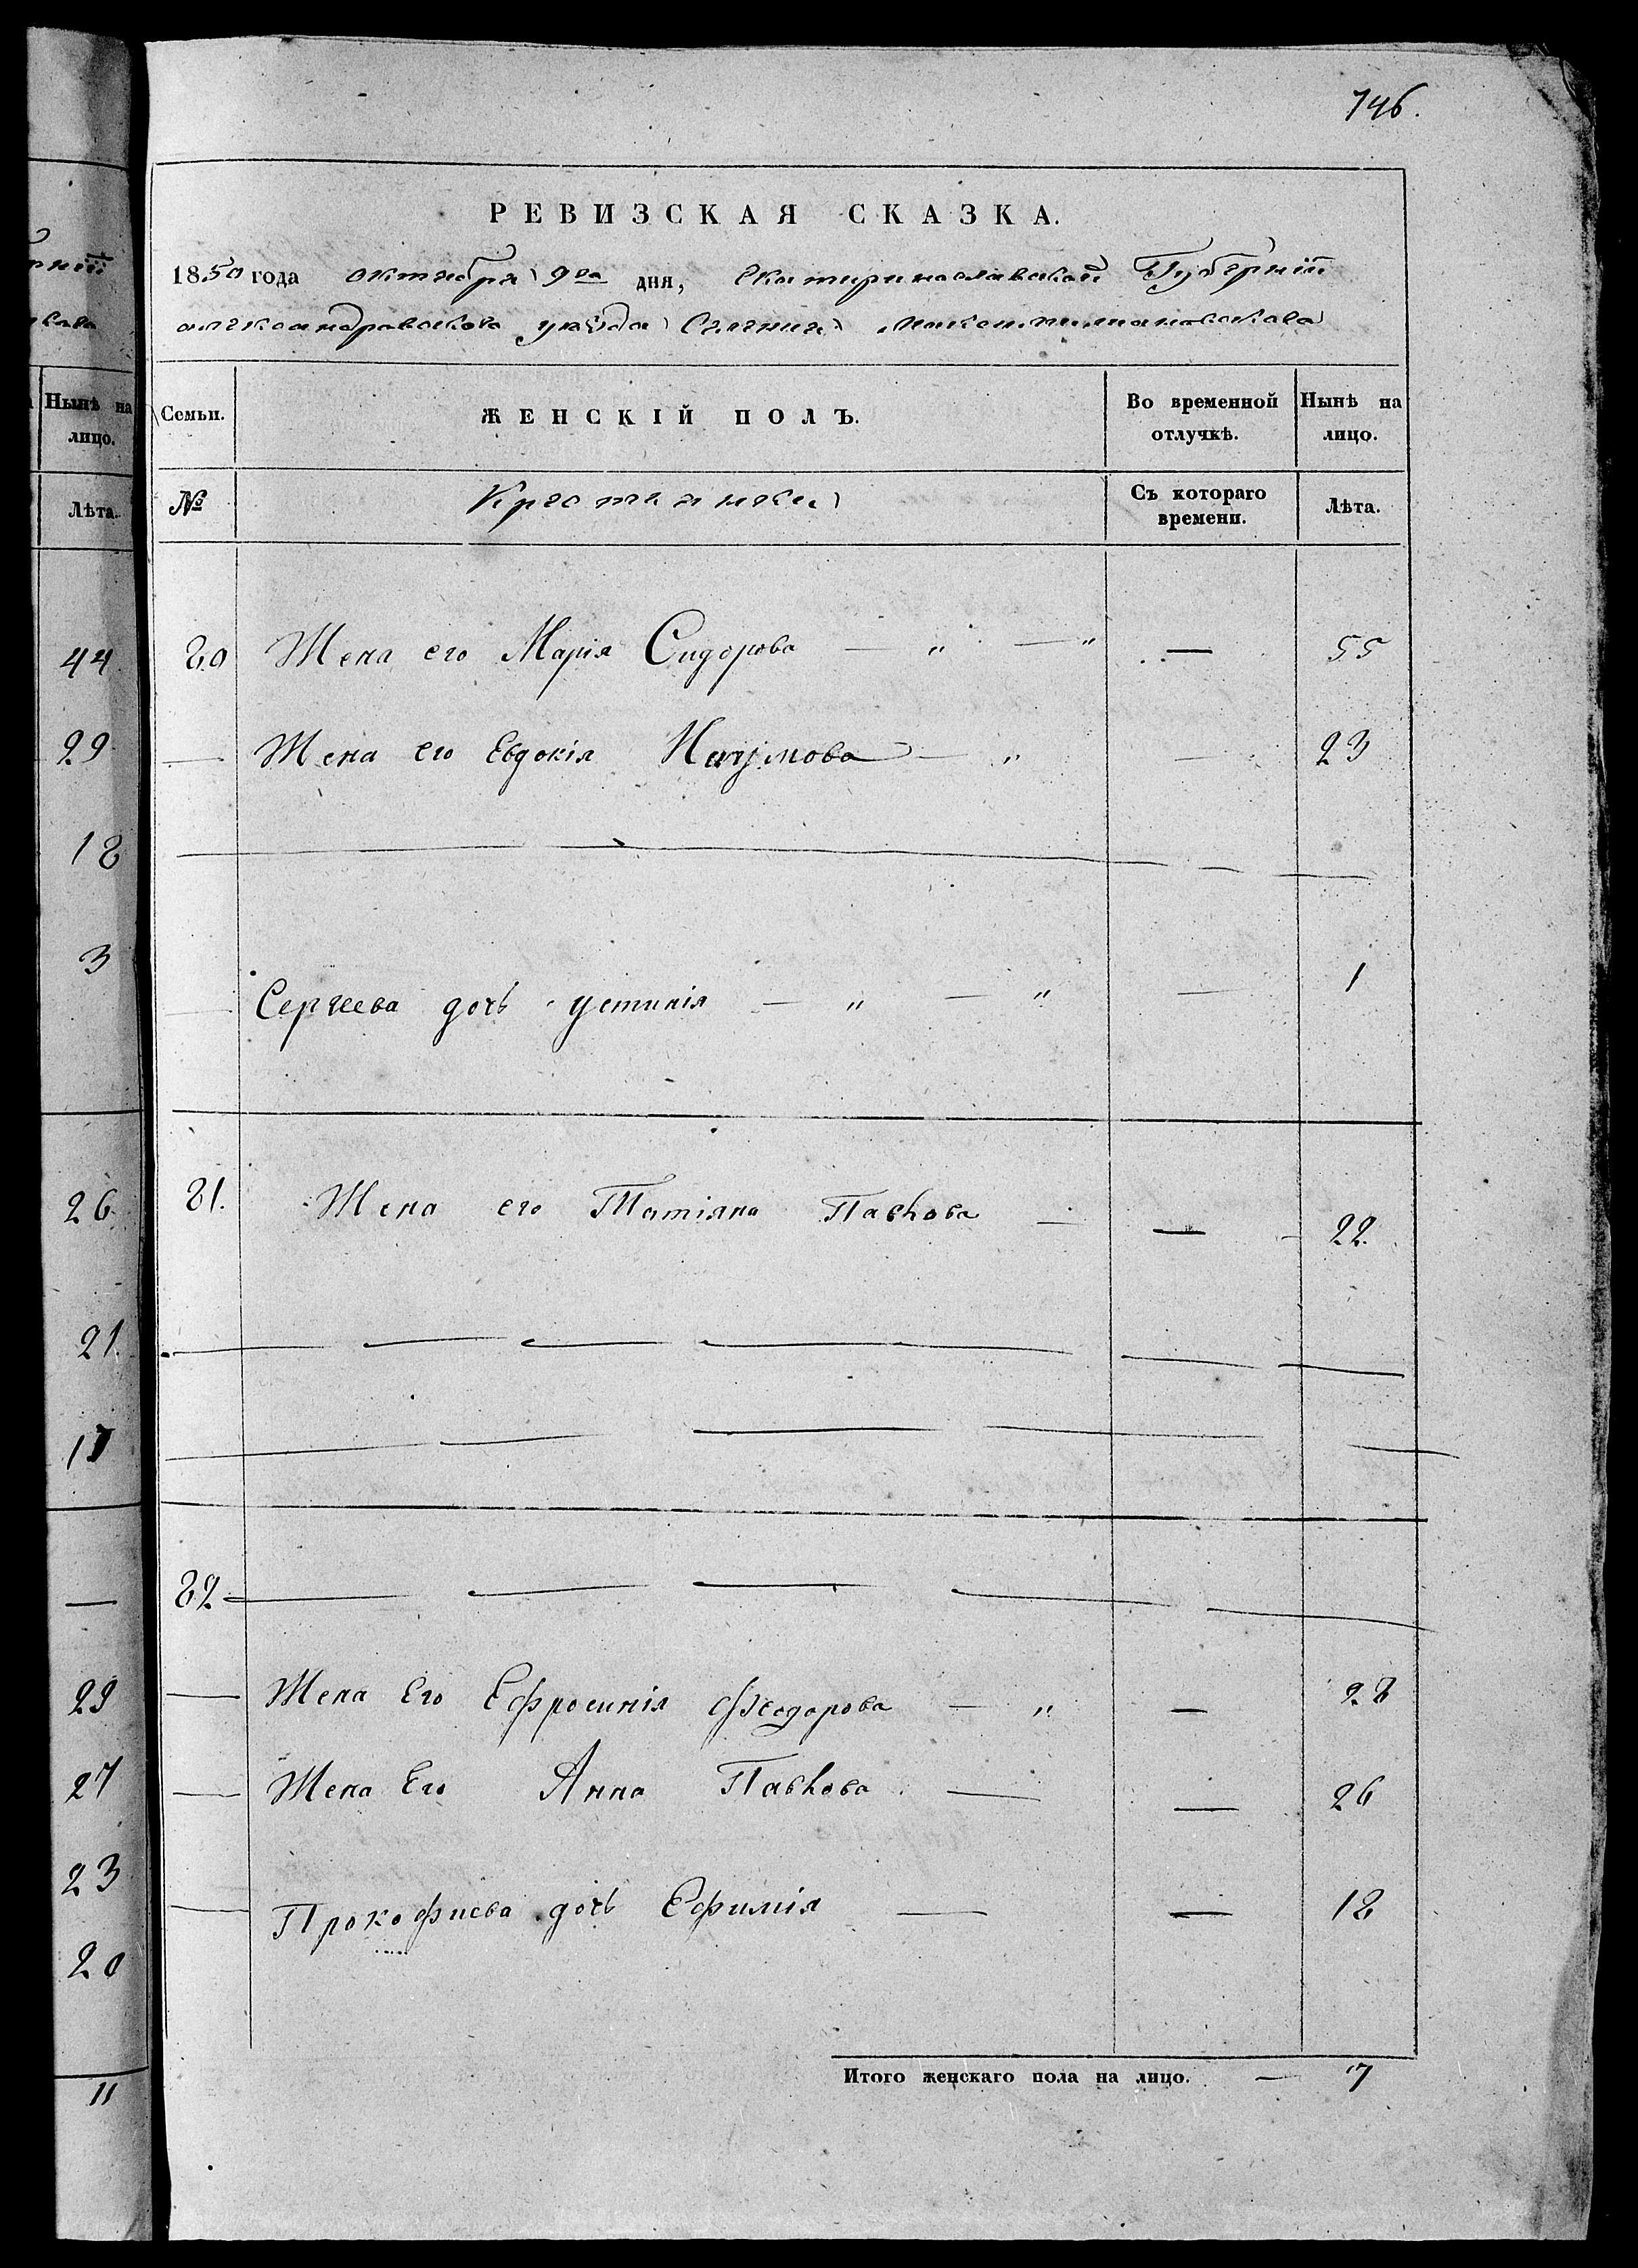 746.
РЕВИЗСКАЯ СКАЗКА.
1850 года октября 9го дня, Екатеринославской Губернии
александровскова уезда Сельния
Семьи. ЖЕНСКІЙ ПОЛЪ. Во временной отлучкѣ. Нынѣ на лицо.
№ Крестьянки Съ котораго времени. Лѣта.
80 Жена его Марія Сидорова — " — " — 55
— Жена его Евдокія Наумова — " — 23
— Сергеева дочь устинія — " — " — 1
81. Жена его Татіяна Павлова — — 22.
82
— Жена Его Ефросинія Феодорова — " — 28
— Жена Его Анна Павлова — — 26
— Прокофиева дочь Ефимія — — 18
Итого женскаго пола на лицо. — 7
Нынѣ на
лицо.
Лѣта.
44
29
18
3
26
21
17
—
29
27
23
20
11